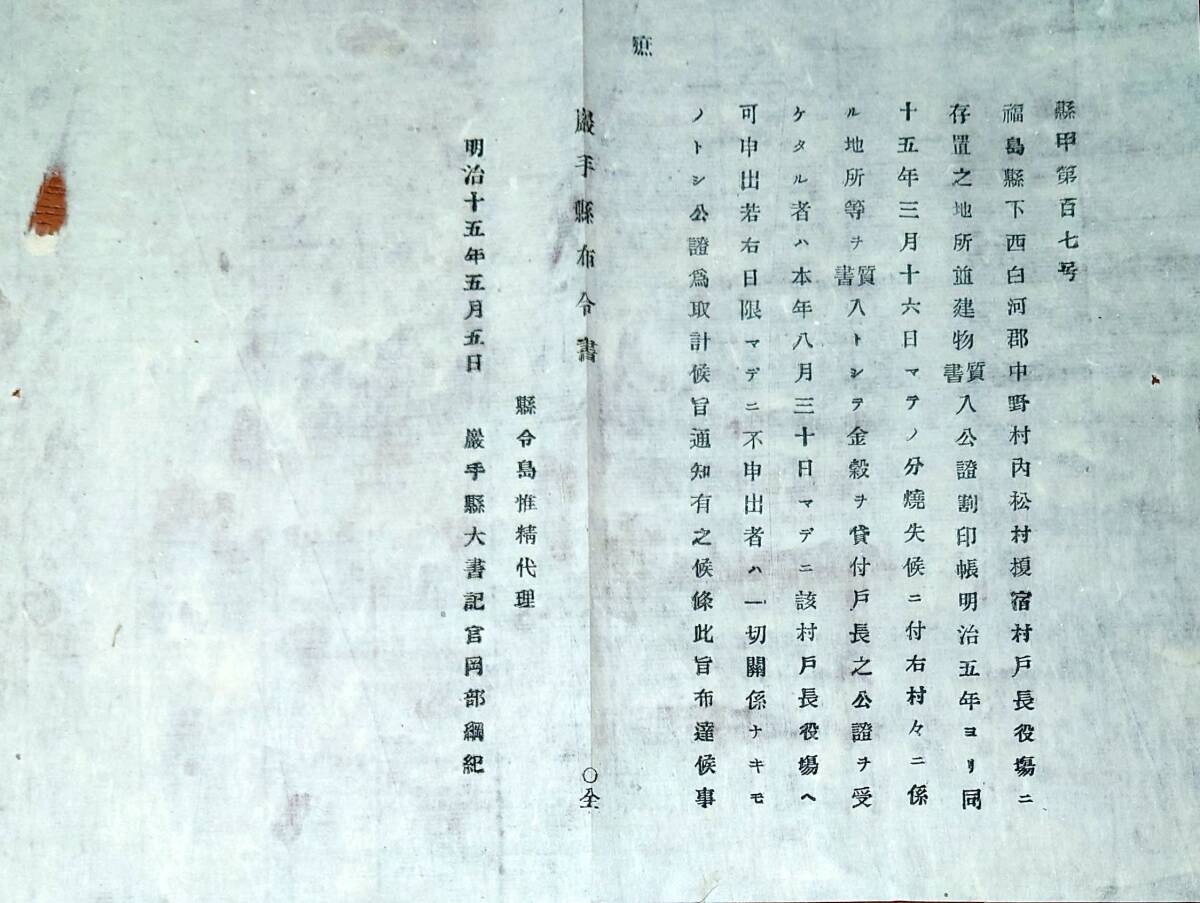 庶
縣甲第百七号
福島縣下西白河郡中野村內松村榎宿村戶長役塲ニ
存置之地所並建物質書入公證割印帳明治五年ヨリ同
十五年三月十六日マテノ分燒失候ニ付右村々ニ係
ル地所等ヲ質書入トシテ金穀ヲ貸付戶長之公證ヲ受
ケタル者ハ本年八月三十日マデニ該村戶長役塲ヘ
可申出若右日限マデニ不申出者ハ一切關係ナキモ
ノトシ公證爲取計候旨通知有之候條此旨布達候事
巖手縣布令書
○仝
縣令島惟精代理
明治十五年五月五日 巖手縣大書記官岡部綱紀